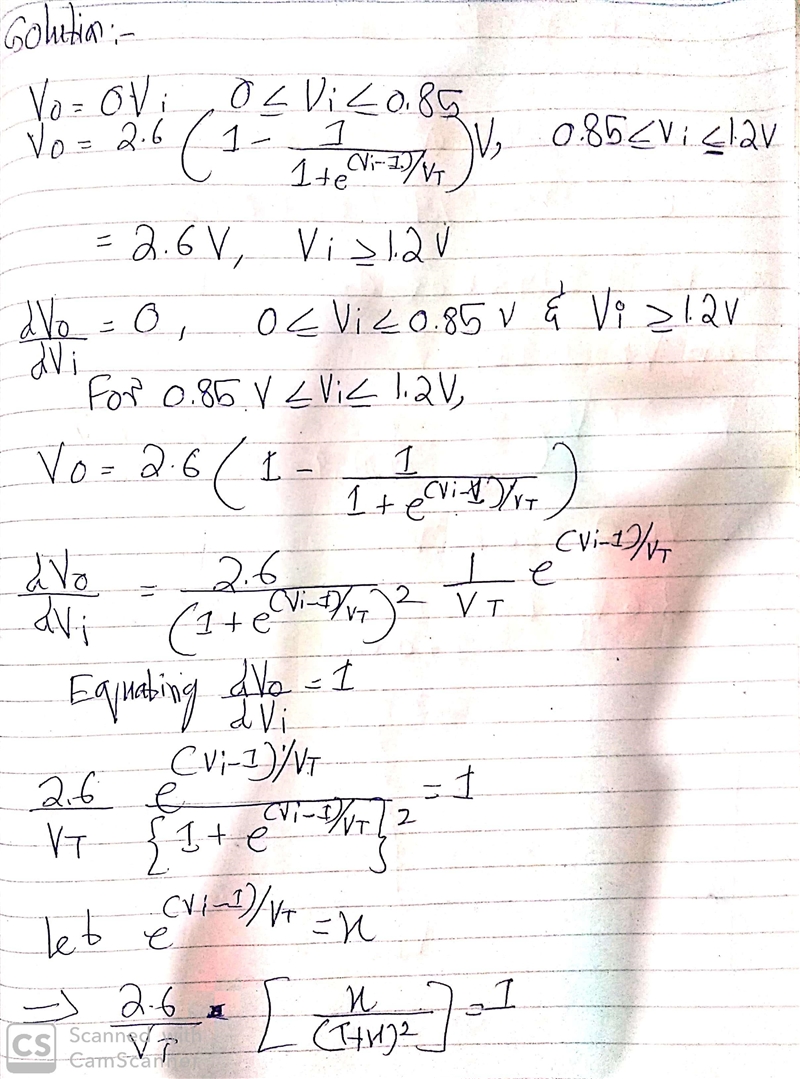 Solution:-
Vo = 0Vi 0 ≤ Vi ≤ 0.85
Vo = 2.6 (1 - 1/(1+e^((Vi-1)/VT))) V, 0.85 ≤ Vi ≤ 1.2V
= 2.6 V, Vi ≥ 1.2 V
dVo/dVi = 0, 0 ≤ Vi ≤ 0.85 V & Vi ≥ 1.2V
For 0.85 V ≤ Vi ≤ 1.2V,
Vo = 2.6 (1 - 1/(1 + e^((Vi-1)/VT)))
dVo/dVi = 2.6/(1+e^((Vi-1)/VT))^2 1/VT e^((Vi-1)/VT)
Equating dVo/dVi = 1
2.6/VT e^((Vi-1)/VT)/{1 + e^((Vi-1)/VT)}^2 = 1
let e^((Vi-1)/VT) = x
⇒ 2.6/VT · [x/(1+x)^2] = 1
CS Scanned with
CamScanner